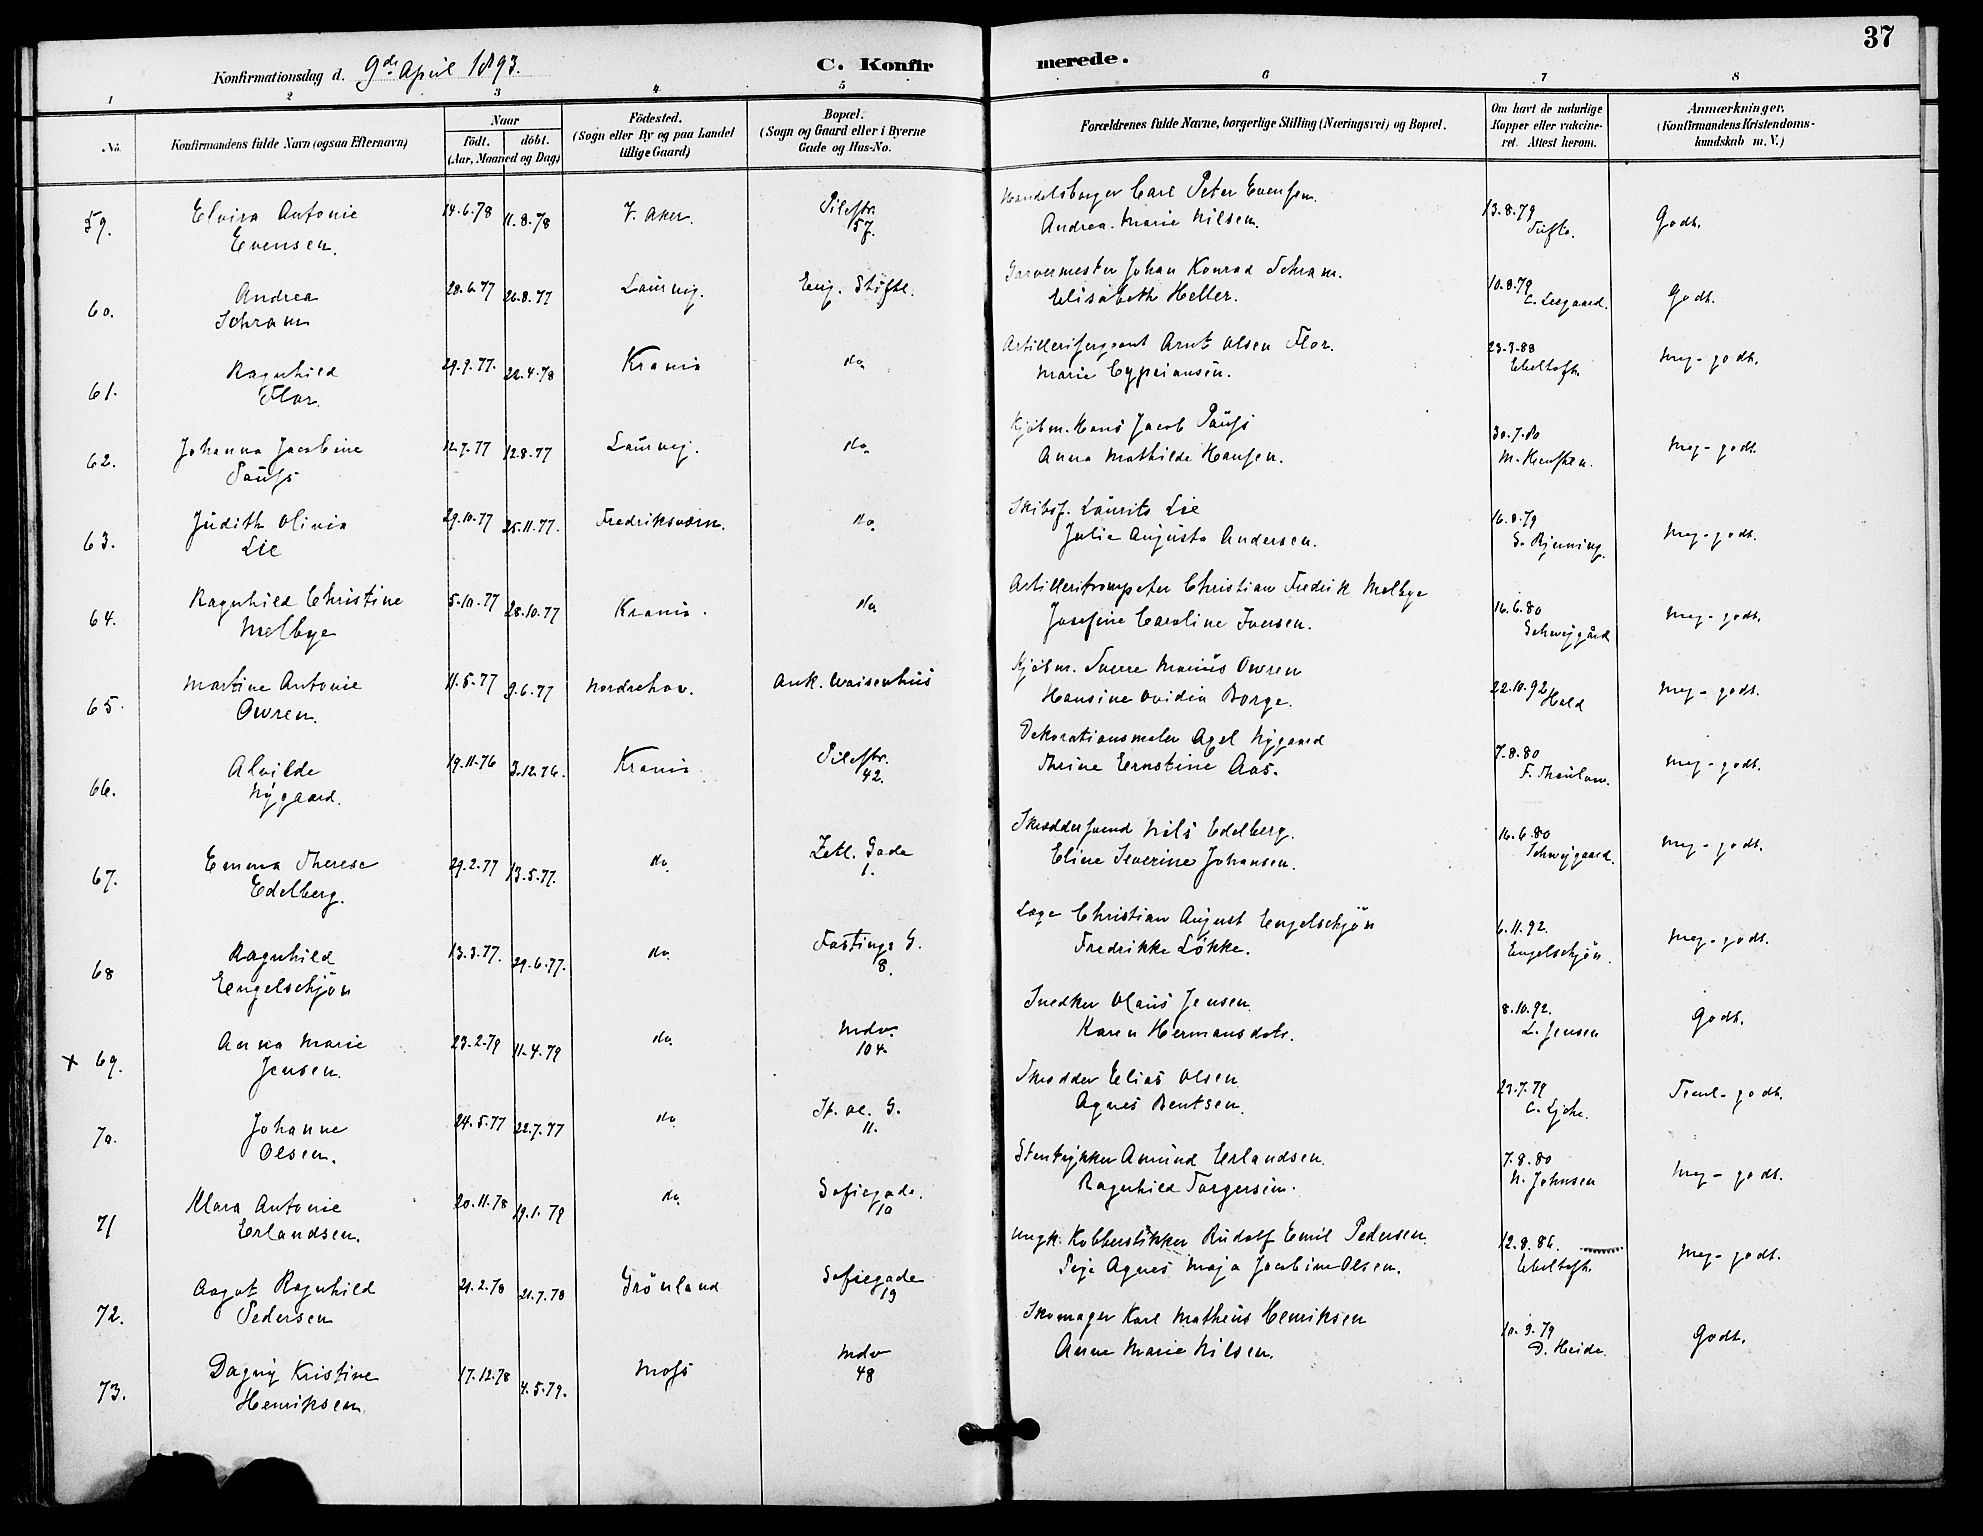 37
Konfirmationsdag d. 9de April 1893.
C. Konfirmerede.
1 2 3 4 5 6 7 8
No.
Konfirmandens fulde Navn (ogsaa Efternavn)
Naar
födt. döbt.
(Aar, Maaned og Dag)
Födested.
(Sogn eller By og paa Landet
tillige Gaard)
Bopæl.
(Sogn og Gaard eller i Byerne
Gade og Hus-No.
Forældrenes fulde Navne, borgerlige Stilling (Næringsvei) og Bopæl.
Om havt de naturlige
Kopper eller vakcine-
ret. Attest herom.
Anmærkninger.
(Konfirmandens Kristendoms-
kundskab m. V.)
59. Elvira Antonie 14.6.78 11.8.78 V. Aker. Pilestr. Handelsborger Carl Peter Evensen. 13.8.79 Godt.
Evensen. 57. Andrea Marie Nilsen.
60. Andrea 28.6.77 26.8.77 Laurvig. Eug. Stiftl. Garvermester Johan Konrad Schram. 10.8.79 Godt.
Schram Elisabeth Heller. C. Leegaard.
61. Ragnhild 29.9.77. 22.4.78 Krania do. Artillerisergeant Arnt Olsen Flor. 23.3.88 Meg-godt.
Flor. Marie Cypriansen. Ebeltoft.
62. Johanna Jacobine 12.7.77 12.8.77 Laurvig. do. Kjöbm. Hans Jacob Paufs 30.7.80 Meg-godt.
Paufs Anna Mathilde Hansen.
63. Judith Olivia 29.10.77 25.11.77. Fredriksværn. do. Skibsf. Laurits Lie 16.8.79 Meg-godt.
Lie Julie Augusta Andersen.
64. Ragnhild Christine 5.10.77 28.10.77 Krania. do. Artilleritrompeter Christian Fredrik Melbye 16.6.80 Meg-godt.
Melbye Josefine Caroline Iversen. Schweigård
65. Martine Antonie 11.5.77 9.6.77 Norderhov. Ank. Waisenhus Kjöbm. Sverre Marius Owren 22.10.92 Hald Meg-godt.
Owren. Hansine Ovidia Borge.
66. Alvilde 19.11.76 3.12.76. Krania Pilestr. Dekorationsmaler Axel Nygaard 7.8.80 Meg-godt.
Nygaard. 42. Thrine Ernstine Aas. F. Thaulow.
67. Emma Therese 29.2.77 13.5.77. do. Zetl. Gade Skræddersvend Nils Edelberg. 16.6.80 Meg-godt.
Edelberg. 1. Eline Severine Johansen. Schweigaard.
68 Ragnhild 13.3.77. 29.6.77. do. Fastings G. Læge Christian August Engelschjön 6.11.92. Meg-godt.
Engelschjön 8. Fredrikke Lökke. Engelschjön
x 69. Anna Marie 23.2.79 11.4.79 do. Mdv. Snedker Olaus Jensen 8.10.92. Godt.
Jensen. 104. Karen Hermansdatr. L. Jensen
70. Johanne 24.5.77 22.7.77 do. St. Ol. G. Skrædder Elias Olsen 23.7.79 Teml-godt.
Olsen. 11. Agnes Bentsen.
71 Klara Antonie 20.11.78 19.1.79 do. Sofiegade. Stentrykker Amund Erlandsen. 7.8.80 Meg-godt.
Erlandsen. 10 Ragnhild Torgersen. N. Johnsen
72. Aagot Ragnhild 21.2.78 21.7.78 Grönland Sofiegade Ungk. Kobberstikker Rudolf Emil Pedersen 12.8.86. Meg-godt.
Pedersen 19 Pige Agnes Maja Jacobine Olsen. Ebeltoft.
73. Dagny Kristine 17.12.78 4.5.79. Mofs Mdv Skomager Karl Matheus Henriksen 10.9.79 Godt.
Henriksen 48 Anne Marie Nilsen. D. Heide.